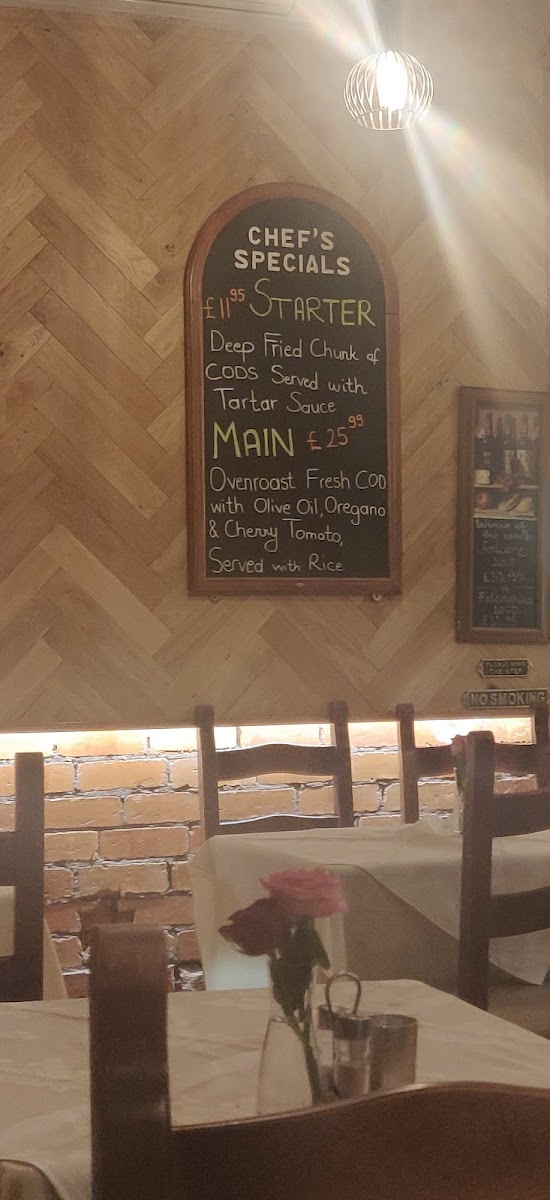 CHEF'S
SPECIALS
£11.95 STARTER
Deep Fried Chunk of
CODS Served with
Tartar Sauce
MAIN £25.99
Ovenroast Fresh COD
with Olive Oil, Oregano
& Cherry Tomato,
Served with Rice
PLEASE MIND
THE STEP
NO SMOKING